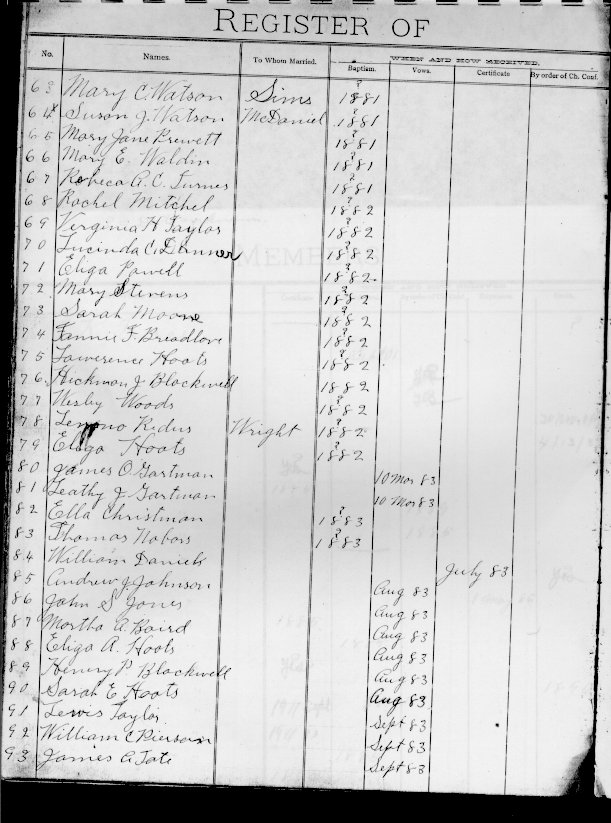 REGISTER OF
WHEN AND HOW RECEIVED.
No. Names. To Whom Married. Baptism. Vows. Certificate By order of Ch. Conf.
63 Mary C. Watson Sims ? 1881
64 Susan J. Watson McDaniel ? 1881
65 Mary Jane Prewett ? 1881
66 Mary E. Waldin ? 1881
67 Robeca A. C. Turner ? 1881
68 Rachel Mitchel ? 1882
69 Virginia H Taylor ? 1882
70 Lucinda C. Danner ? 1882
71 Eliga Powell ? 1882
72 Mary Stevens ? 1882
73 Sarah Moone ? 1882
74 Fannie F. Breadlove ? 1882
75 Lawerence Hoots ? 1882
76 Hickman J Blackwell ? 1882
77 Wesby Woods ? 1882
78 Kidus Wright ? 1882
79 Eliga Hoots ? 1882
80 James O. Gartman 10 Mar 83
81 Leathy J Gartman 10 Mar 83
82 Ella Christman ? 1883
83 Thomas Nabors ? 1883
84 William Daniels July 83
85 Andrew J Johnson Aug 83
86 John S Jones Aug 83
87 Martha A Baird Aug 83
88 Eliga A. Hoots Aug 83
89 Henery P. Blackwell Aug 83
90 Sarah E Hoots Aug 83
91 Lewis Taylor Sept 83
92 William C Pierson Sept 83
93 James A Tate Sept 83